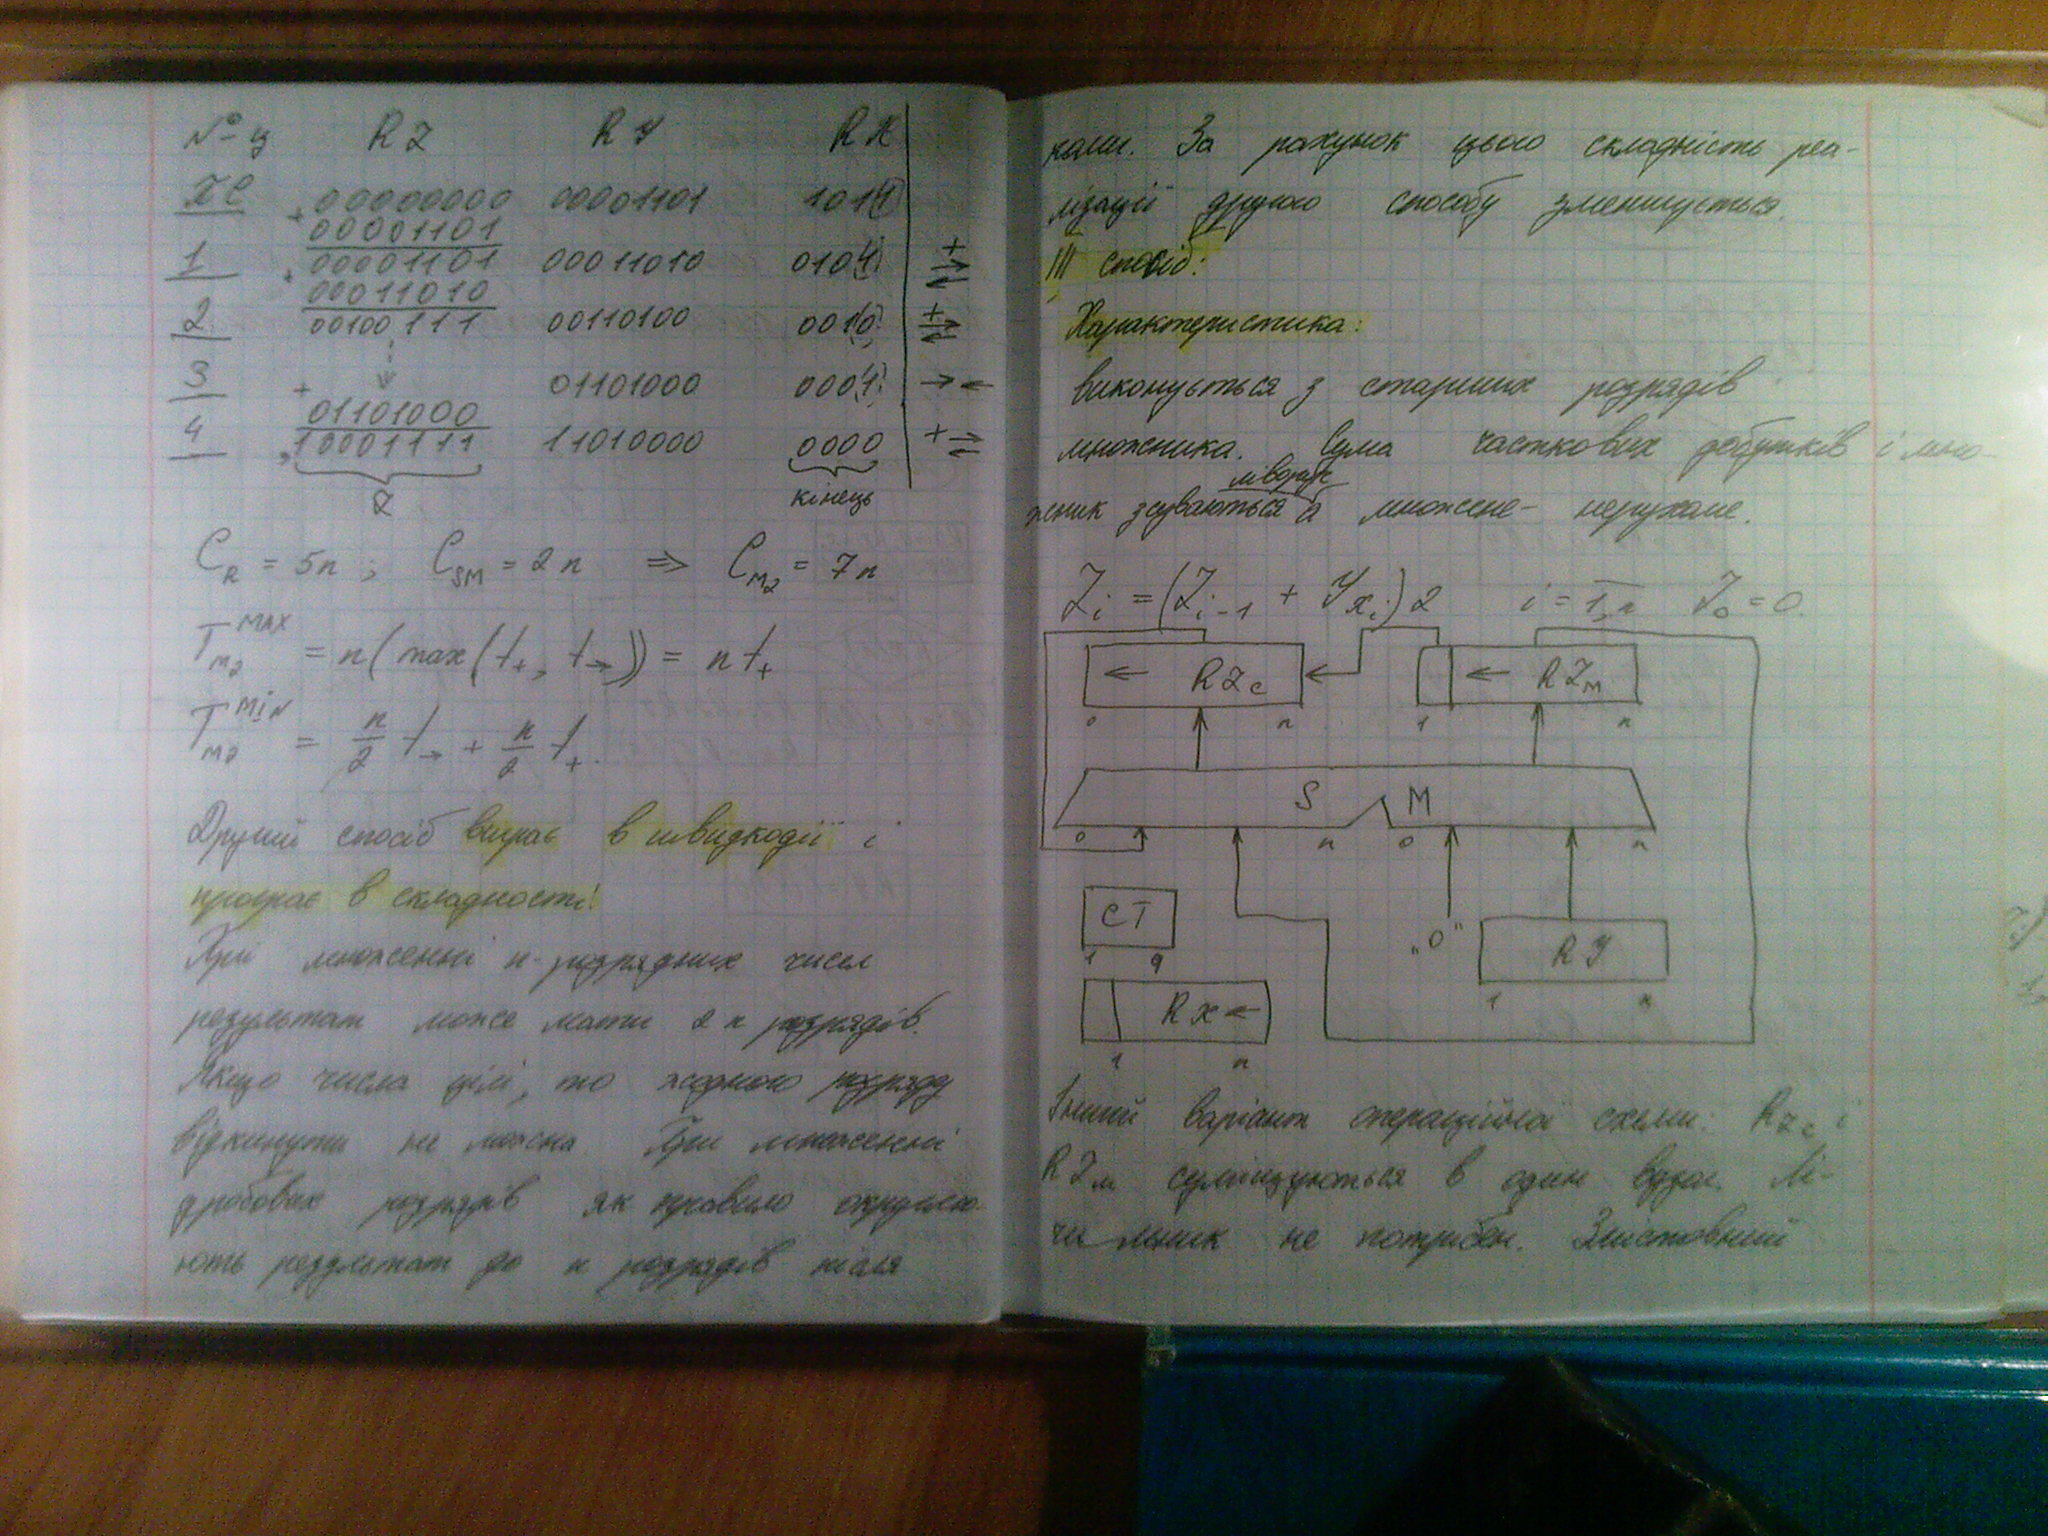 № ц RZ RY RX
ПС 00000000 00001101 1011
+ 00001101
1 00001101 00011010 0101 +
+ 00011010
2 00100111 00110100 0010 +
3 01101000 0001 → ←
+ 01101000
4 10001111 11010000 0000 +
Z кінець
C_R = 5n ; C_SM = 2n ⇒ C_M2 = 7n
T_M2^MAX = n(max(t_+, t_→)) = n t_+
T_M2^MIN = n/2 t_→ + n/2 t_+.
Другий спосіб виграє в швидкодії і
програє в складності!
При множенні n-розрядних чисел
результат може мати 2n розрядів.
Якщо числа цілі, то жодного розряду
відкинути не можна. При множенні
дробових розрядів як правило округлю-
ють результат до n розрядів після
коми. За рахунок цього складність реа-
лізації другого способу зменшується.
III спосіб:
Характеристика:
виконується з старших розрядів
множника. Сума часткових добутків і мно-
ліворуч
жник зсуваються а множене - нерухоме.
Z_i = (Z_i-1 + Y x_i) 2 i = 1,n Y_0 = 0.
← RZ_C ← RZ_M
0 n 1 n
S M
0 n 0 n
CT
1 q
"0" RY
1 n
RX ←
1 n
Інший варіант операційної схеми: RZ_C і
RZ_M в один вузол. Лі-
чильник не потрібен. Змістовний